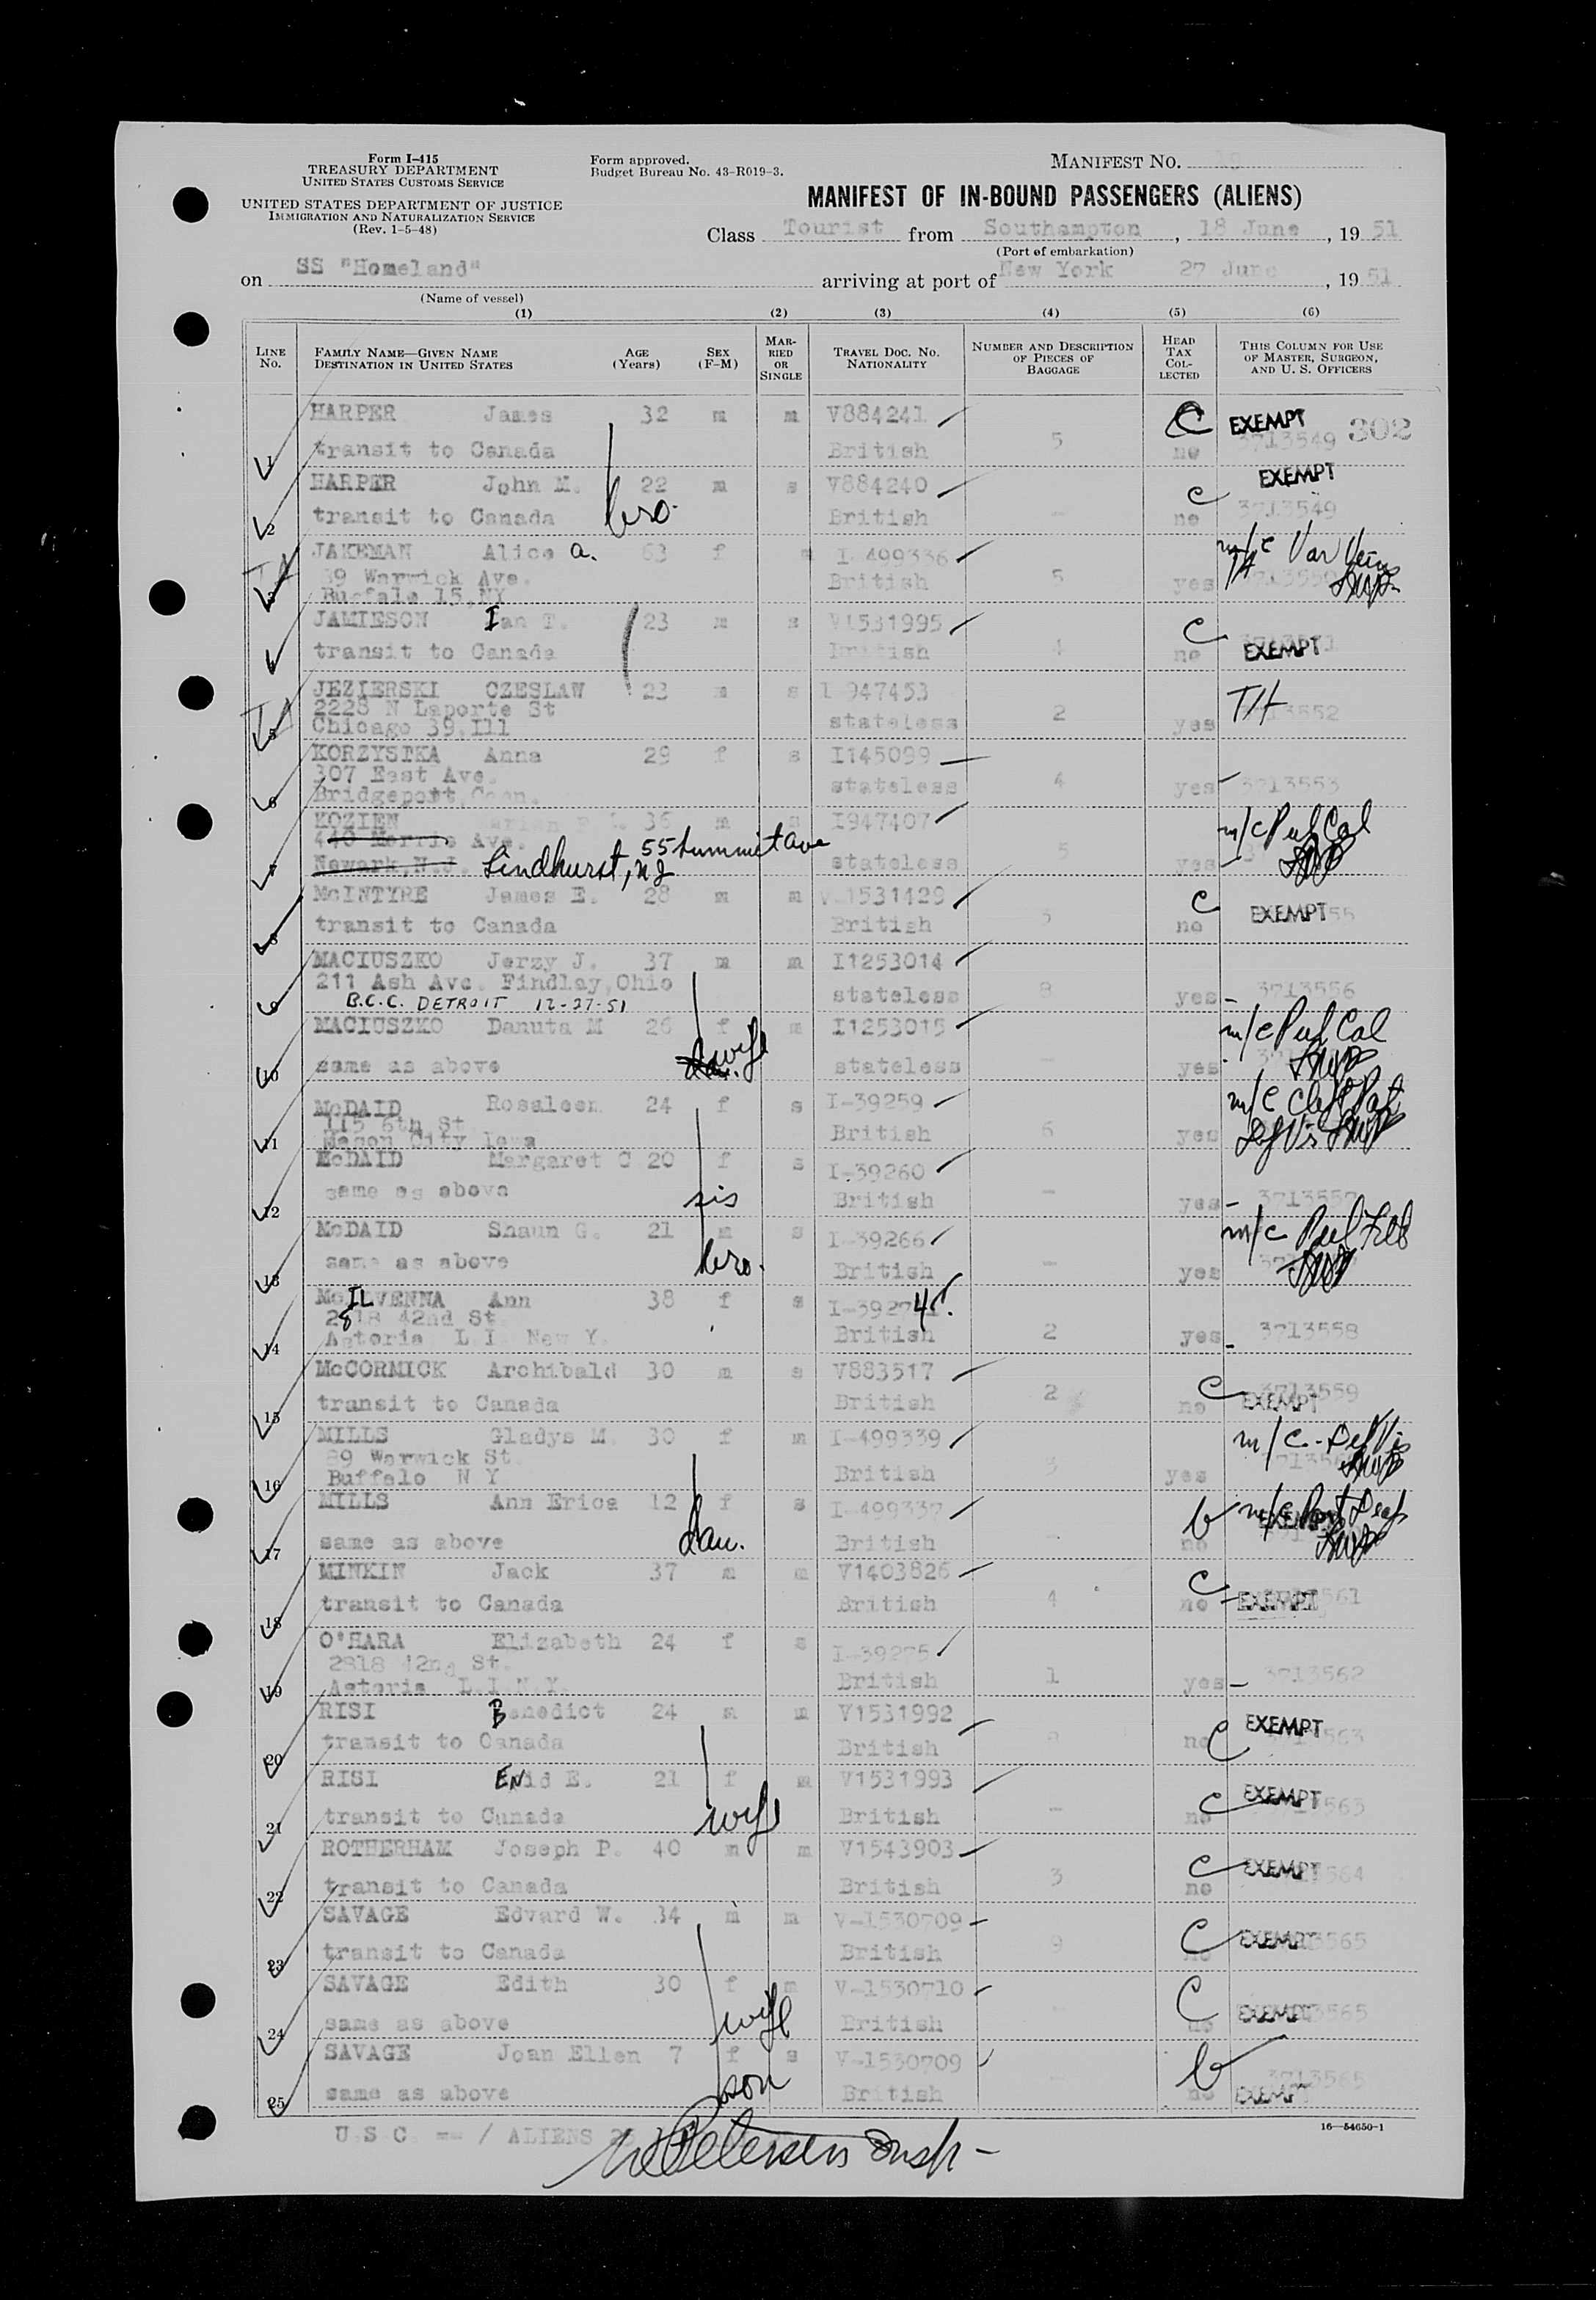 Form I-415
TREASURY DEPARTMENT
UNITED STATES CUSTOMS SERVICE
UNITED STATES DEPARTMENT OF JUSTICE
IMMIGRATION AND NATURALIZATION SERVICE
(Rev. 1-5-48)
Form approved.
Budget Bureau No. 43-R019-3.
MANIFEST NO.
MANIFEST OF IN-BOUND PASSENGERS (ALIENS)
Class Tourist from Southampton, 18 June, 1951
(Port of embarkation)
on SS "Homeland" arriving at port of New York 27 June, 1951
(Name of vessel)
(1) (2) (3) (4) (5) (6)
LINE NO. FAMILY NAME—GIVEN NAME DESTINATION IN UNITED STATES AGE (Years) SEX (F-M) MARRIED OR SINGLE TRAVEL DOC. NO. NATIONALITY NUMBER AND DESCRIPTION OF PIECES OF BAGGAGE HEAD TAX COLLECTED THIS COLUMN FOR USE OF MASTER, SURGEON, AND U. S. OFFICERS
HARPER James 32 m m V884241 C EXEMPT 302
1 transit to Canada British 5 no 3713549
HARPER John M. 22 m s V884240 C EXEMPT
2 transit to Canada bro. British - no 3713549
JAKEMAN Alice a. 63 f m I-499336 m/c Var Veins
3 89 Warwick Ave. British 5 yes
Buffalo 15, NY
JAMIESON Ian T. 23 m s V1531995 C
4 transit to Canada British 4 no EXEMPT
JEZIERSKI CZESLAW 23 m s I 947453 TH
5 2228 N Laporte St stateless 2 yes 3713552
Chicago 39, Ill
KORZYSTKA Anna 29 f s I145099
6 307 East Ave. stateless 4 yes 3713553
Bridgeport, Conn.
KOZIEN 36 m s I947407 m/c Pul Cal
7 Ave. 55 Summit Ave stateless 5 yes
Newark, N.J. Lindhurst, NJ
McINTYRE James E. 28 m m V-1531429 C EXEMPT
8 transit to Canada British no
MACIUSZKO Jerzy J. 37 m m I1253014
9 211 Ash Ave. Findlay, Ohio stateless 8 yes 3713556
B.C.C. DETROIT 12-27-51
MACIUSZKO Danuta M 26 f m I1253015 m/c Pul Cal
10 same as above wife stateless - yes
McDAID Rosaleen 24 f s I-39259 m/c
11 115 6th St British 6 yes
Mason City Iowa
McDAID Margaret C 20 f s I-39260
12 same as above sis British - yes 3713557
McDAID Shaun G. 21 m s I-39266 m/c Pul
13 same as above bro. British - yes
McILVENNA Ann 38 f s
14 2818 42nd St British 2 yes 3713558
Astoria L I New Y.
McCORMICK Archibald 30 m s V883517 C 3713559
15 transit to Canada British 2 no EXEMPT
MILLS Gladys M. 30 f m I-499339 m/c - Def Vis
16 89 Warwick St British 3 yes
Buffalo N Y
MILLS Ann Erica 12 f s I-499337 b m/c
17 same as above dau. British - no
MINKIN Jack 37 m m V1403826 C
18 transit to Canada British 4 no EXEMPT
O'HARA Elizabeth 24 f s I-39275
19 2818 42nd St. British 1 yes 3713562
Astoria L.I N.Y.
RISI Benedict 24 m m V1531992 EXEMPT
20 transit to Canada British no C
RISI ENid E. 21 f m V1531993 EXEMPT
21 transit to Canada wife British - no C
ROTHERHAM Joseph P. 40 m m V1543903 C EXEMPT
22 transit to Canada British 3 no
SAVAGE Edward W. 34 m m V-1530709 C EXEMPT
23 transit to Canada British 9
SAVAGE Edith 30 f m V-1530710 C
24 same as above wife British - no EXEMPT
SAVAGE Joan Ellen 7 f s V-1530709 b 3713565
25 same as above son British - no EXEMPT
U S C -- / ALIENS 25
Petersen Insp-
16—54650-1